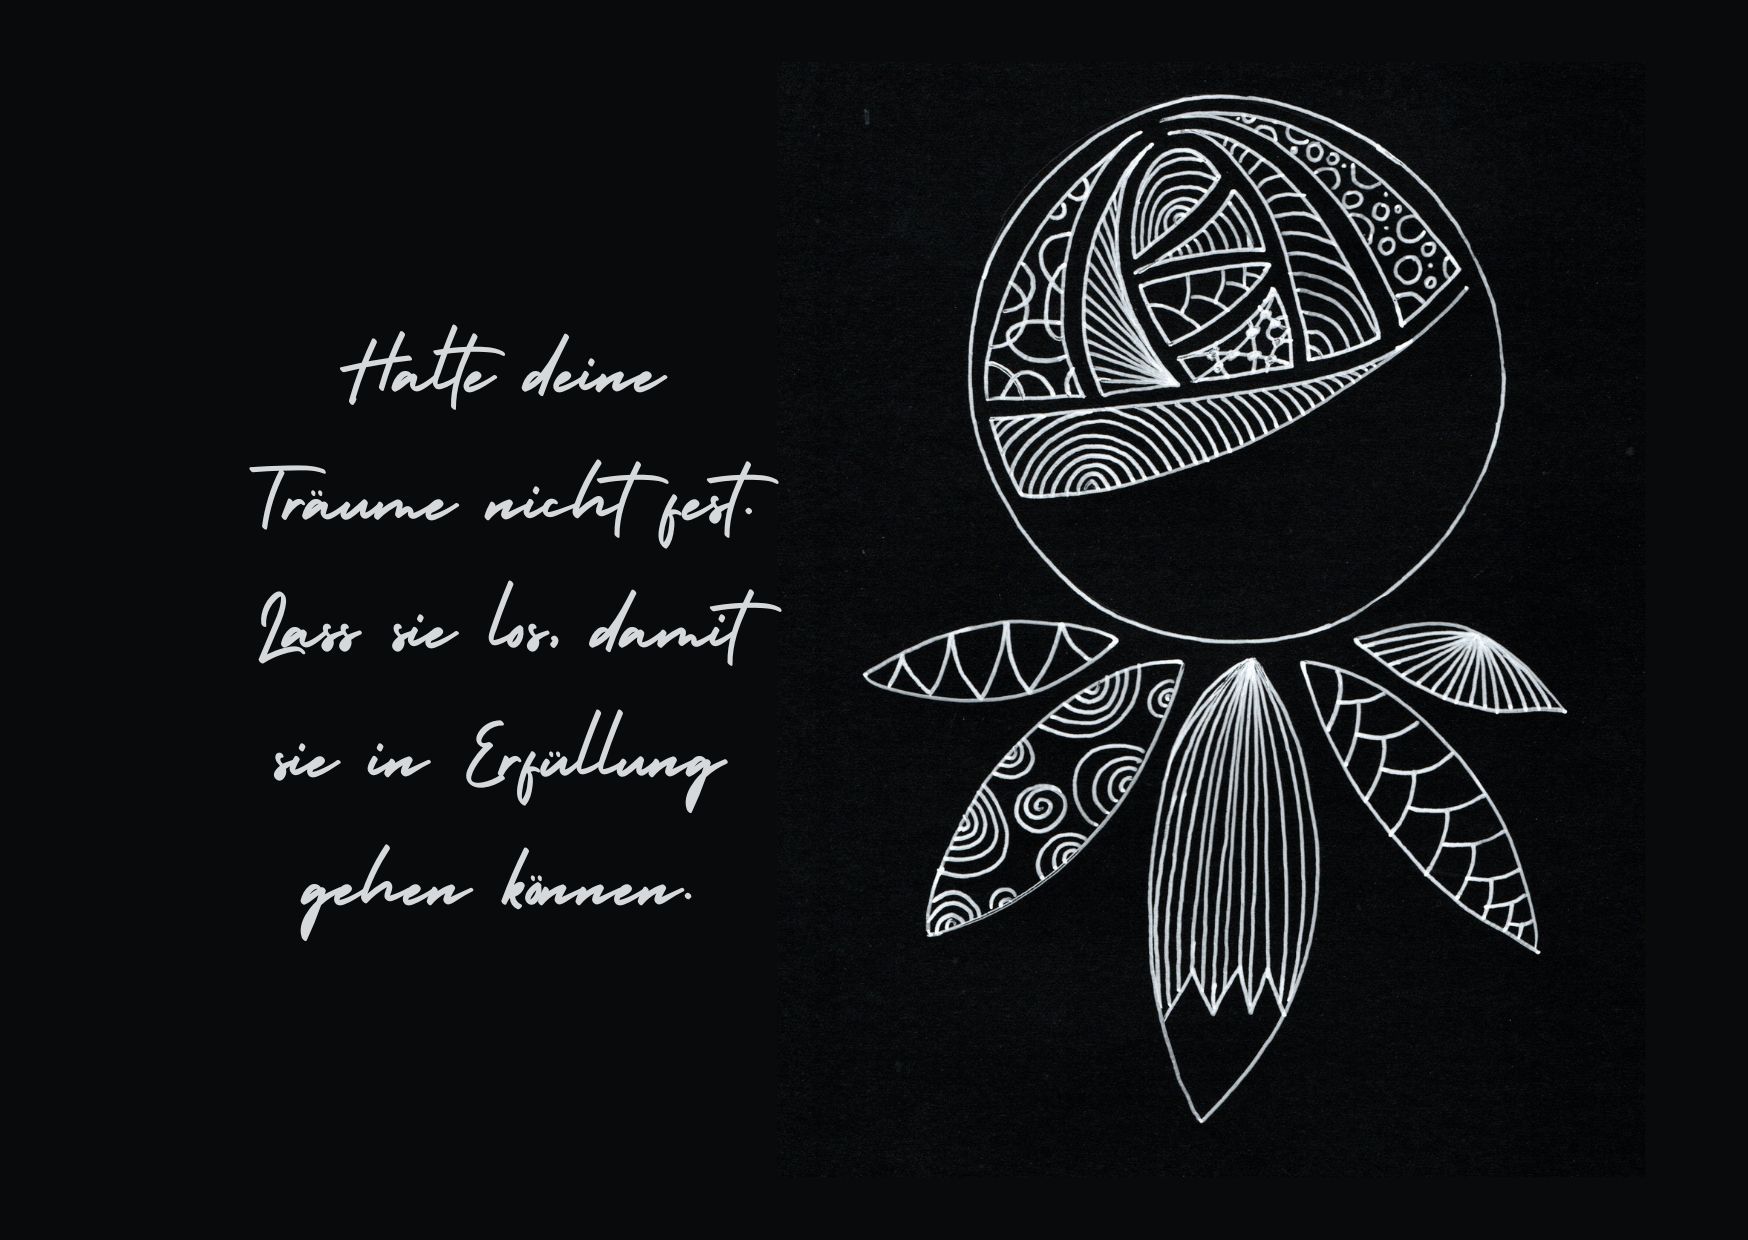 Halte deine
Träume nicht fest.
Lass sie los, damit
sie in Erfüllung
gehen können.